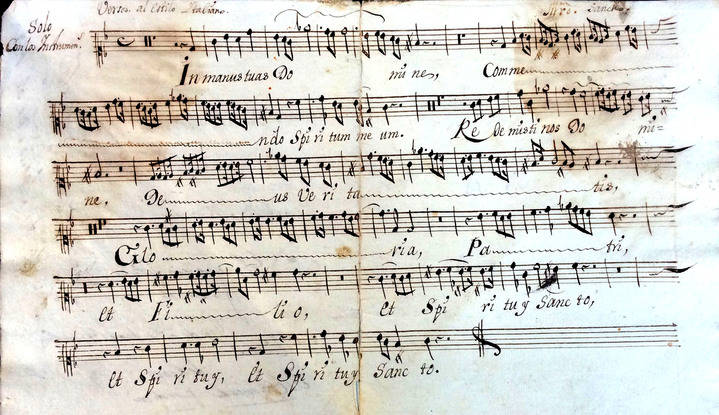 Versos al Estilo Italiano.
Solo
Con los Instrumen.ˢ
In manus tuas Do mi ne, Comme
ndo Spi ri tum me um. Re de misti nos Do mi=
ne. De us Ve ri ta tis,
Glo ria, Pa tri,
et Fi li o, et Spi ri tuy Sanc to,
et Spi ri tuy, et Spi ri tuy Sanc to.